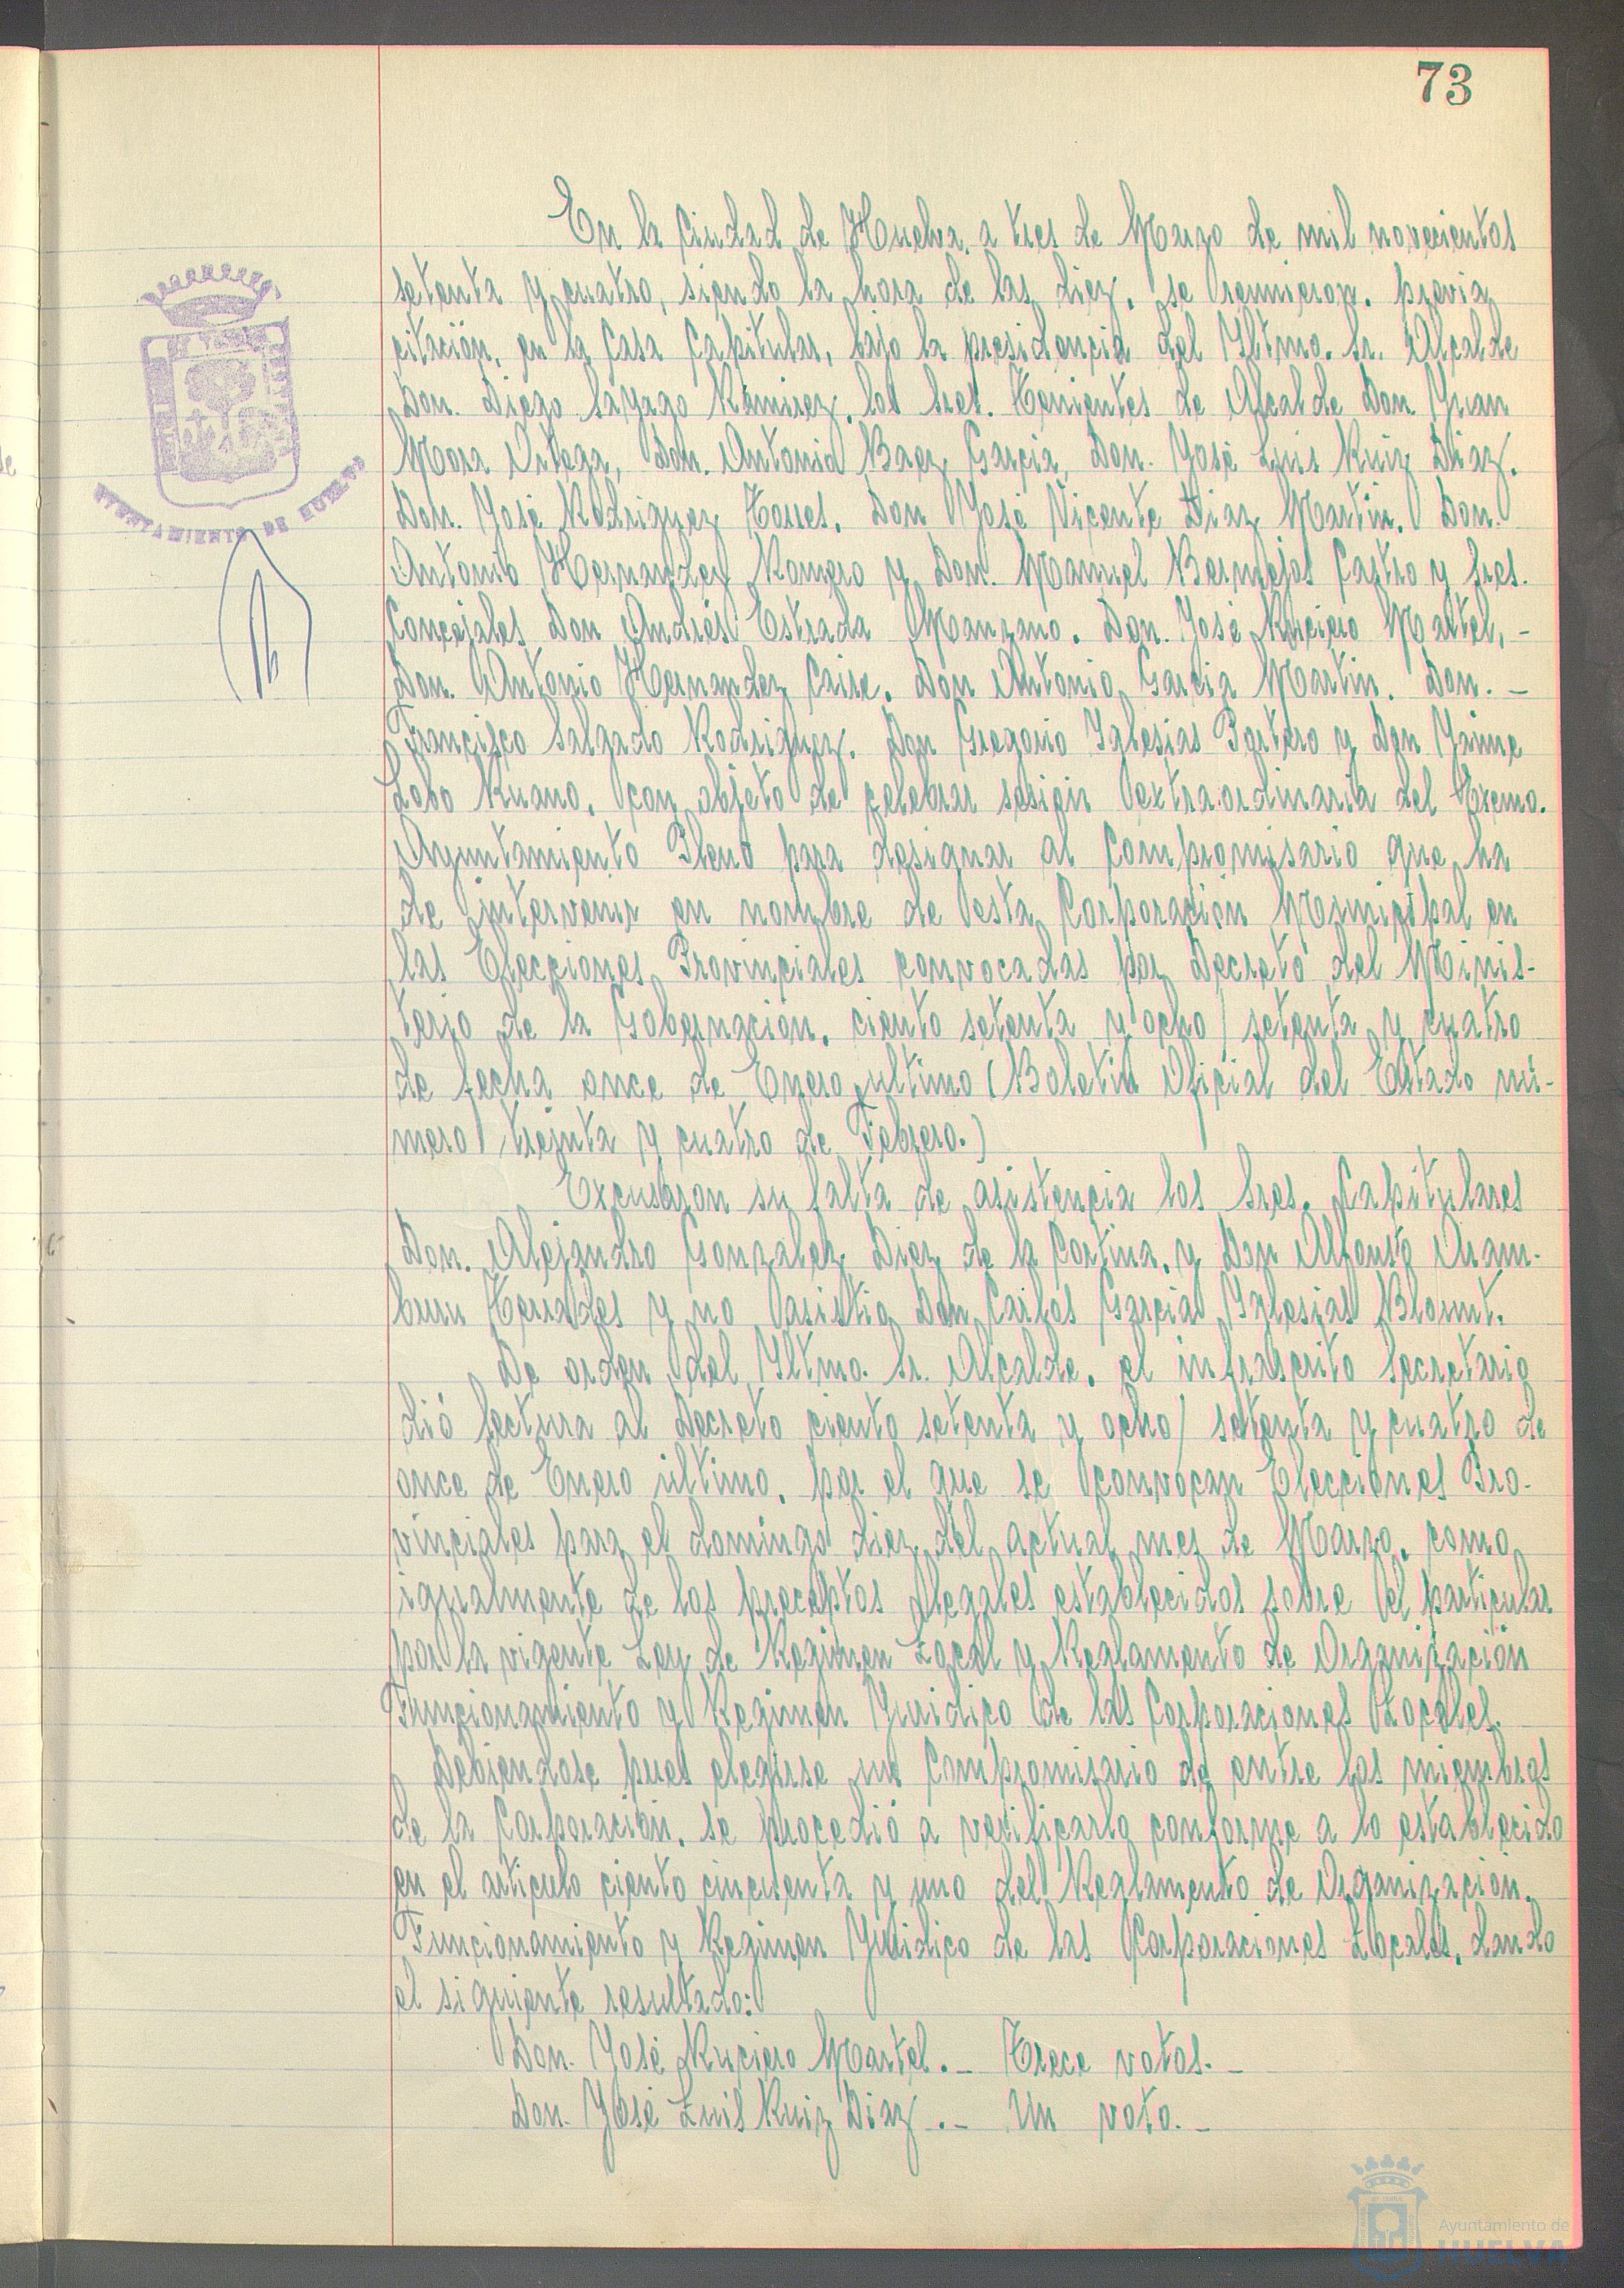 73
En la Ciudad de Huelva, a tres de Marzo de mil novecientos
setenta y cuatro, siendo la hora de las diez, se reunieron, previa
citación, en la Casa Capitular, bajo la presidencia del Iltmo. Sr. Alcalde
Don. Diego Sayago Ramirez, los Sres. Tenientes de Alcalde Don Juan
Mora Ortega, Don. Antonio Baez Garcia, Don. José Luis Ruiz Diaz,
Don. José Rodriguez Torres, Don José Vicente Diaz Martin, Don.
Antonio Hernandez Romero y Don. Manuel Bermejos Castro y Sres.
Concejales Don Andrés Estrada Manzano, Don. José Ruciero Martel, -
Don. Antonio Hernandez Caire, Don Antonio Garcia Martin, Don. -
Francisco Salgado Rodriguez, Don Gregorio Iglesias Portero y Don Jaime
Lobo Ruano, con objeto de celebrar sesión extraordinaria del Excmo.
Ayuntamiento Pleno para designar al Compromisario que ha
de intervenir en nombre de esta Corporación Municipal en
las Elecciones Provinciales convocadas por Decreto del Minis-
terio de la Gobernación, ciento setenta y ocho/setenta y cuatro
de fecha once de Enero ultimo (Boletin Oficial del Estado nú-
mero treinta y cuatro de Febrero.)
Excusaron su falta de asistencia los Sres. Capitulares
Don. Alejandro Gonzalez Diez de la Cortina, y Don Alfonso Aram-
buru Terrades y no asistio Don Carlos Garcia Iglesias Blount.
De orden del Iltmo. Sr. Alcalde, el infrascrito Secretario
dió lectura al Decreto ciento setenta y ocho/setenta y cuatro de
once de Enero último, por el que se convocan Elecciones Pro-
vinciales para el domingo diez del actual mes de Marzo, como
igualmente de los preceptos legales establecidos sobre el particular
por la vigente Ley de Regimen Local y Reglamento de Organización
Funcionamiento y Regimen Juridico de las Corporaciones Locales.
Debiendose pues elegirse un Compromisario de entre los miembros
de la Corporación, se procedió a verificarlo conforme a lo establecido
en el articulo ciento cincuenta y uno del Reglamento de Organización,
Funcionamiento y Regimen Juridico de las Corporaciones Locales, dando
el siguiente resultado:
Don. José Ruciero Martel. - Trece votos. -
Don. José Luis Ruiz Diaz. - Un voto. -
AYUNTAMIENTO DE HUELVA
Ayuntamiento de
HUELVA